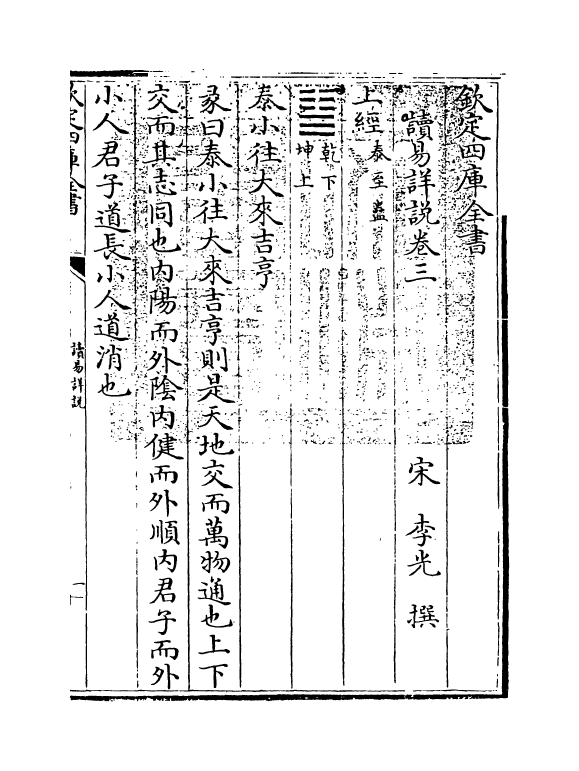 欽定四庫全書
讀易詳說卷三
宋 李光 撰
上經 泰至蠱
乾下
坤上
泰小往大來吉亨
彖曰泰小往大來吉亨則是天地交而萬物通也上下
交而其志同也內陽而外陰內健而外順內君子而外
小人君子道長小人道消也
欽定四庫全書
讀易詳說
一